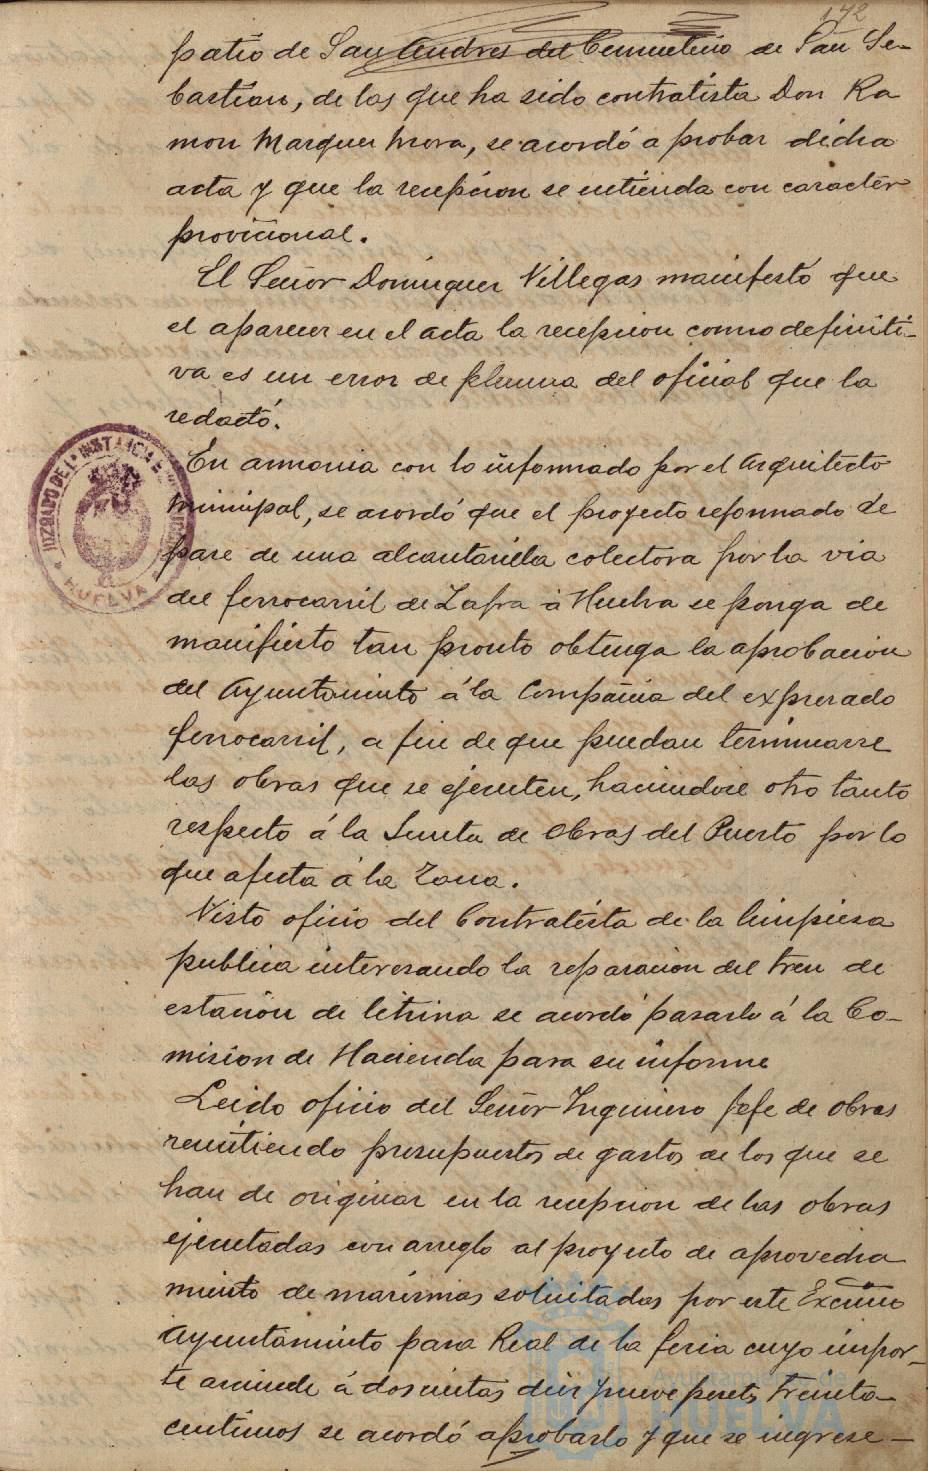 172
patio de San Andres del Cementerio de San Se-
bastian, de las que ha sido contratista Don Ra
mon Marquez Mora, se acordó aprobar dicha
acta y que la recepcion se entienda con caracter
provicional.
El Señor Dominguez Villegas manifestó que
el aparecer en el acta la recepcion como definiti-
va es un error de pluma del oficial que la
redactó.
En armonia con lo informado por el Arquitecto
Municipal, se acordó que el proyecto reformado de
pase de una alcantarilla colectora por la via
del ferrocarril de Zafra á Huelva se ponga de
manifiesto tan pronto obtenga la aprobacion
del Ayuntamiento á la Compañia del expresado
ferrocarril, a fin de que puedan terminarse
las obras que se ejecuten, haciendose otro tanto
respecto á la Junta de Obras del Puerto por lo
que afecta á la Zona.
Visto oficio del Contratista de la limpieza
publica interesando la reparacion del tren de
estación de letrina se acordó pasarlo á la Co-
mision de Hacienda para su informe
Leido oficio del Señor Ingeniero Jefe de Obras
remitiendo presupuestos de gastos de los que se
han de originar en la recepcion de las obras
ejecutadas con arreglo al proyecto de aprovecha
miento de marismas solicitadas por este Excmo
Ayuntamiento para Real de la feria cuyo impor-
te asciende á doscientas diez y nueve pesetas treinta
centimos se acordó aprobarlo y que se ingrese-
JUZGADO DE 1ª INSTANCIA E
HUELVA
Ayuntamiento de
HUELVA